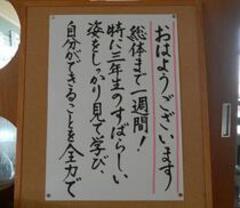 おはようございます
総体まで一週間！
特に三年生のすばらしい
姿をしっかり見て学び、
自分ができることを全力で